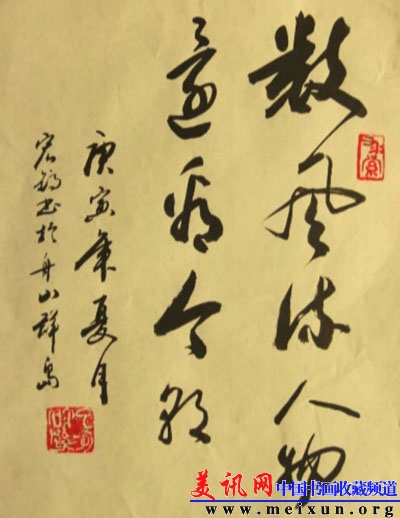 数风流人物
还看今朝
庚寅年夏月
宏鸹书于舟山群岛
美讯网 中国书画收藏频道
www.meixun.org